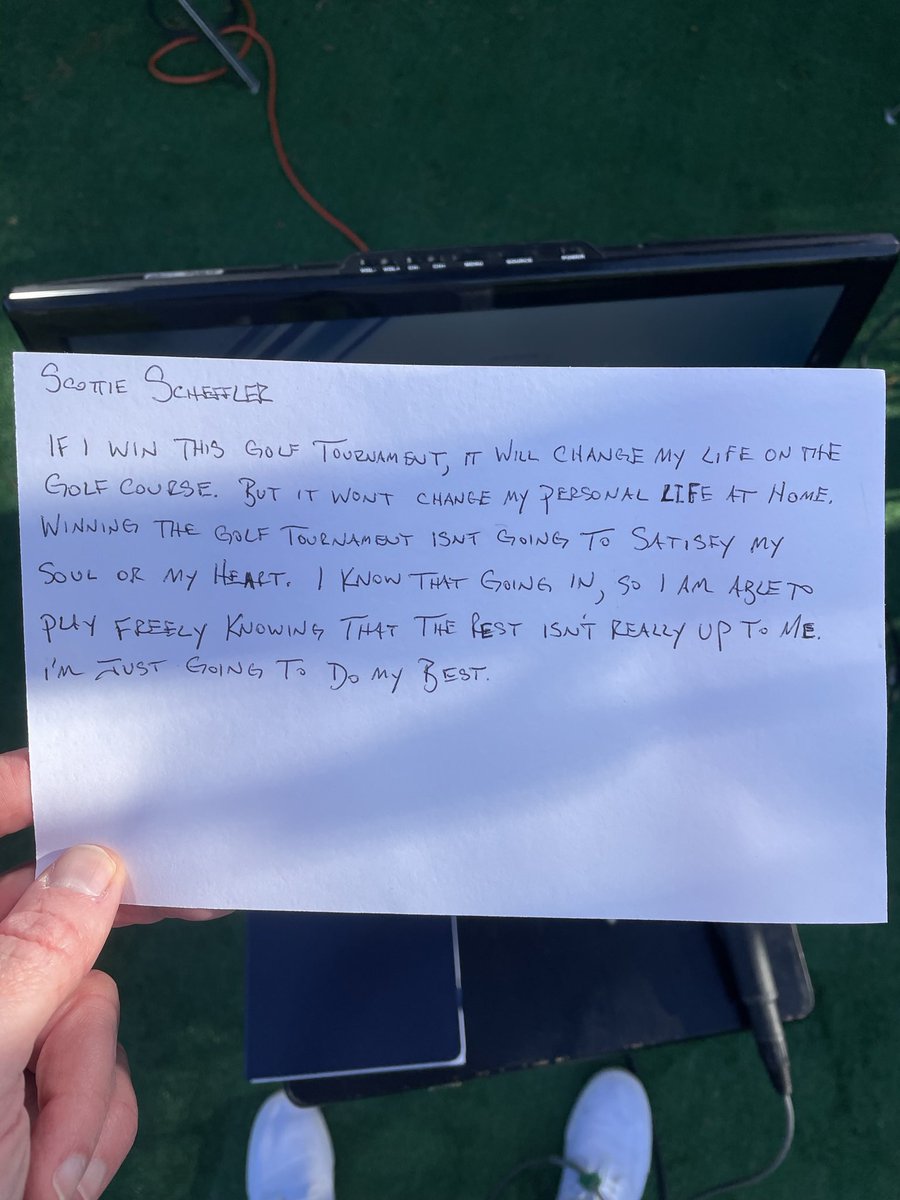 VOL- VOL+ CH- CH+ MENU SOURCE POWER
SCOTTIE SCHEFFLER
IF I WIN THIS GOLF TOURNAMENT, IT WILL CHANGE MY LIFE ON THE
GOLF COURSE. BUT IT WONT CHANGE MY PERSONAL LIFE AT HOME.
WINNING THE GOLF TOURNAMENT ISNT GOING TO SATISFY MY
SOUL OR MY HEART. I KNOW THAT GOING IN, SO I AM ABLE TO
PLAY FREELY KNOWING THAT THE REST ISN'T REALLY UP TO ME.
I'M JUST GOING TO DO MY BEST.